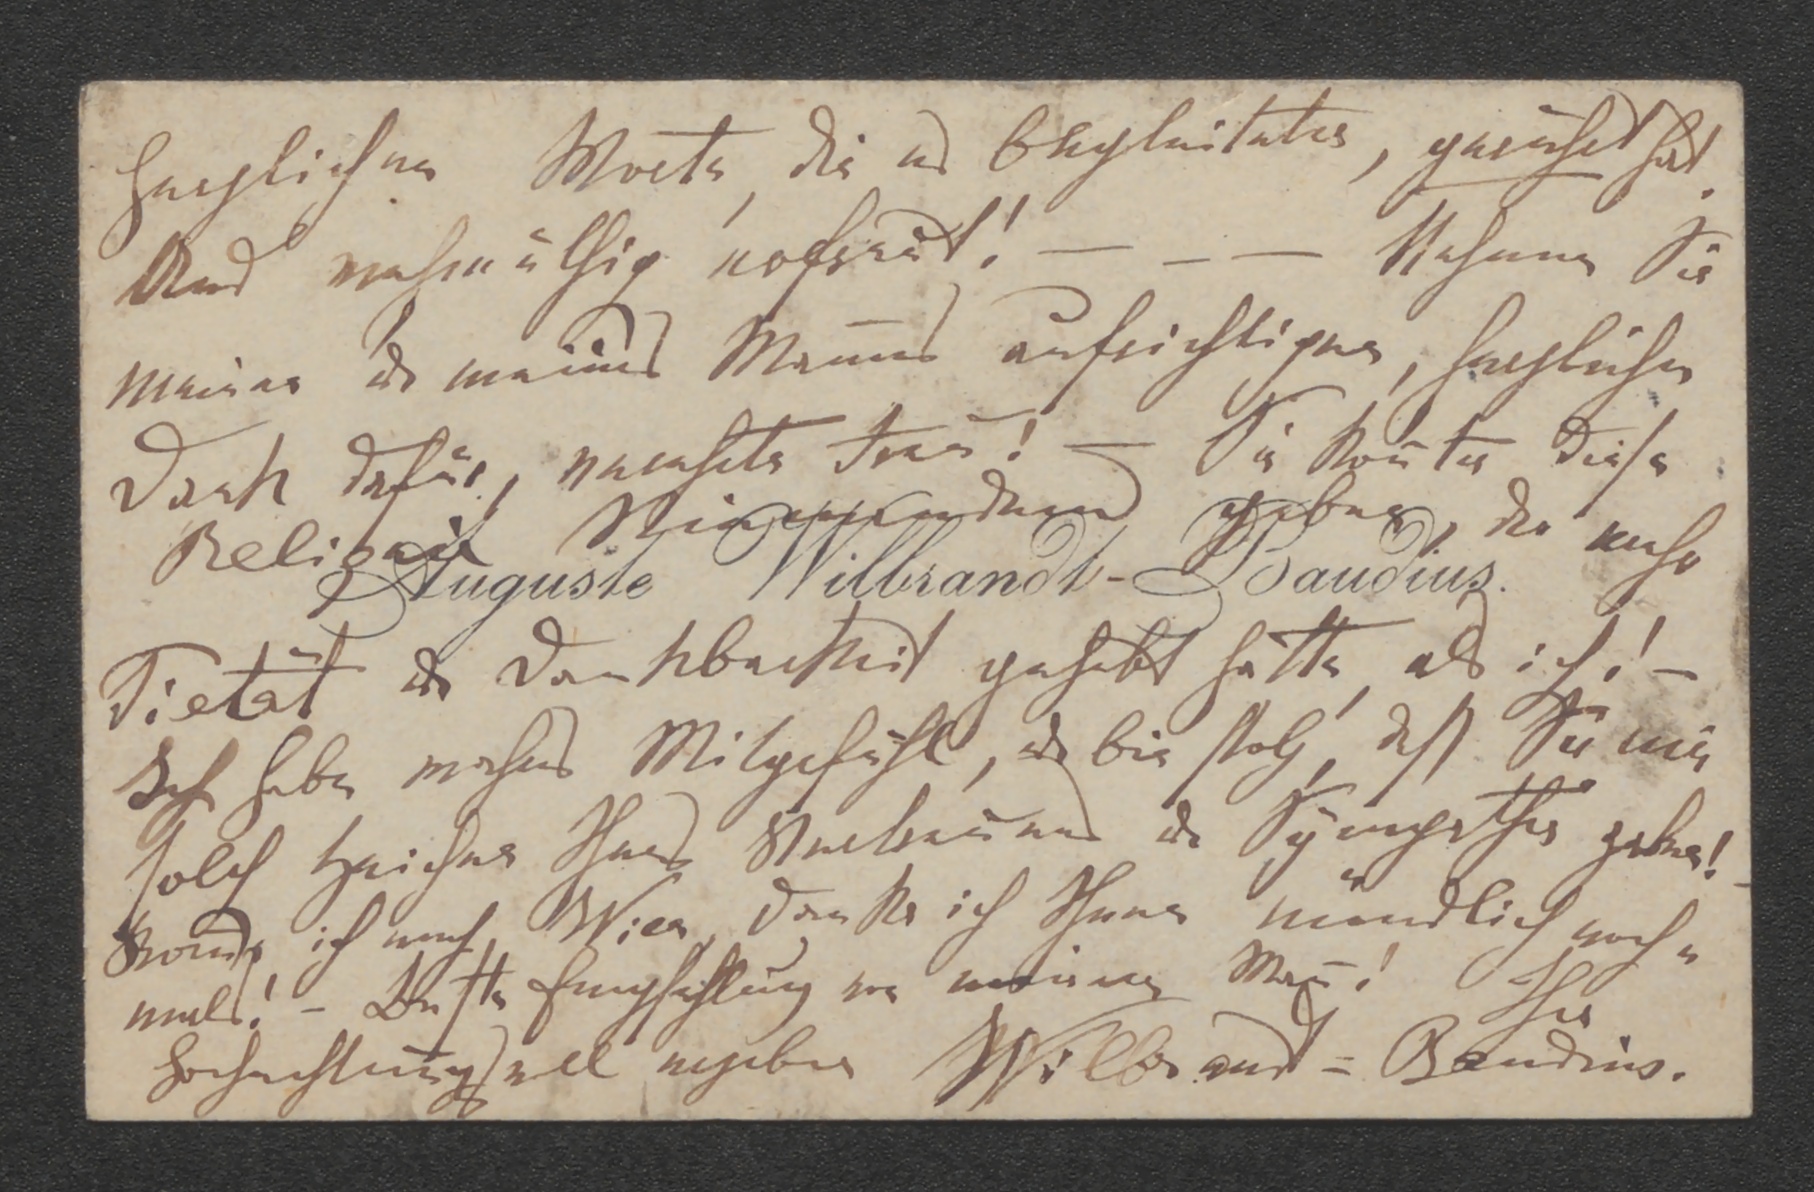 herzlichen Worte, die es begleiteten, gerührt hat.
Und wehmüthig erfreut! — – — Nehmen Sie
meinen u meines Mannes aufrichtigen, herzlichen
Dank dafür, verehrte Frau! — Sie konten diese
Reliquie Niemandem geben, der mehr
Auguste Wilbrandt-Baudius.
Pietät u Dankbarkeit gehabt hätte, als ich! –
Ich habe wahres Mitgefühl, u bin stolz, daß Sie mir
solch Zeichen Ihres Vertrauens u Sympathie geben! –
Komme ich nach Wien, danke ich Ihnen mündlich noch=
mals! – Beste Empfehlung von meinem Mann! Ihre
hochachtungsvoll ergebene Wilbrandt=Baudius.